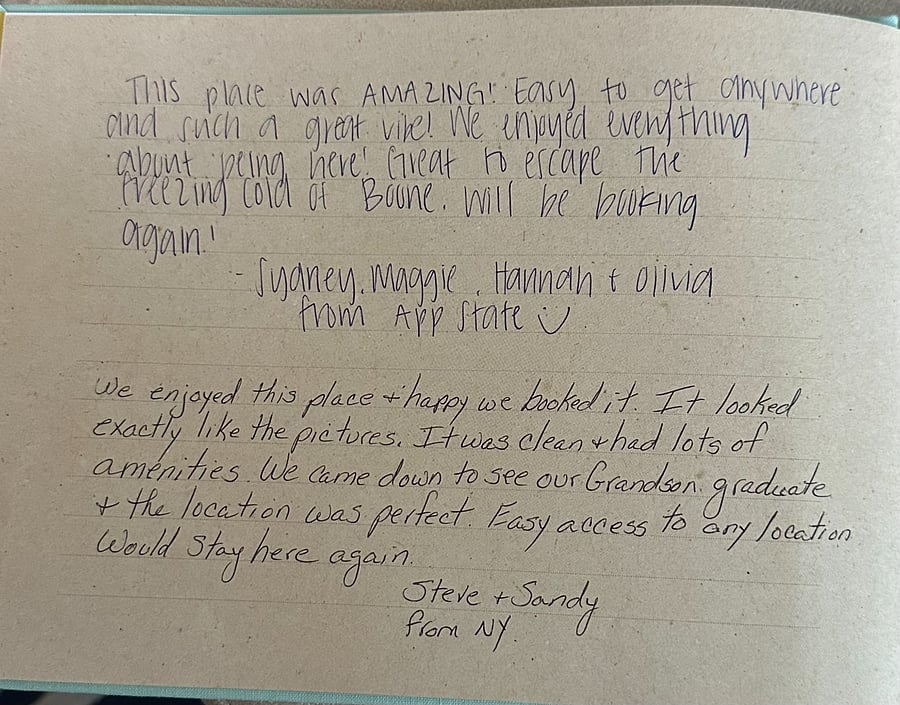 This place was AMAZING! Easy to get anywhere
and such a great vibe! We enjoyed everything
about being here! Great to escape the
freezing cold of Boone. Will be booking
again!
- Sydney, Maggie, Hannah + Olivia
from App State :)
We enjoyed this place + happy we booked it. It looked
exactly like the pictures. It was clean + had lots of
amenities. We came down to see our Grandson graduate
+ the location was perfect. Easy access to any location
Would stay here again.
Steve + Sandy
from NY.